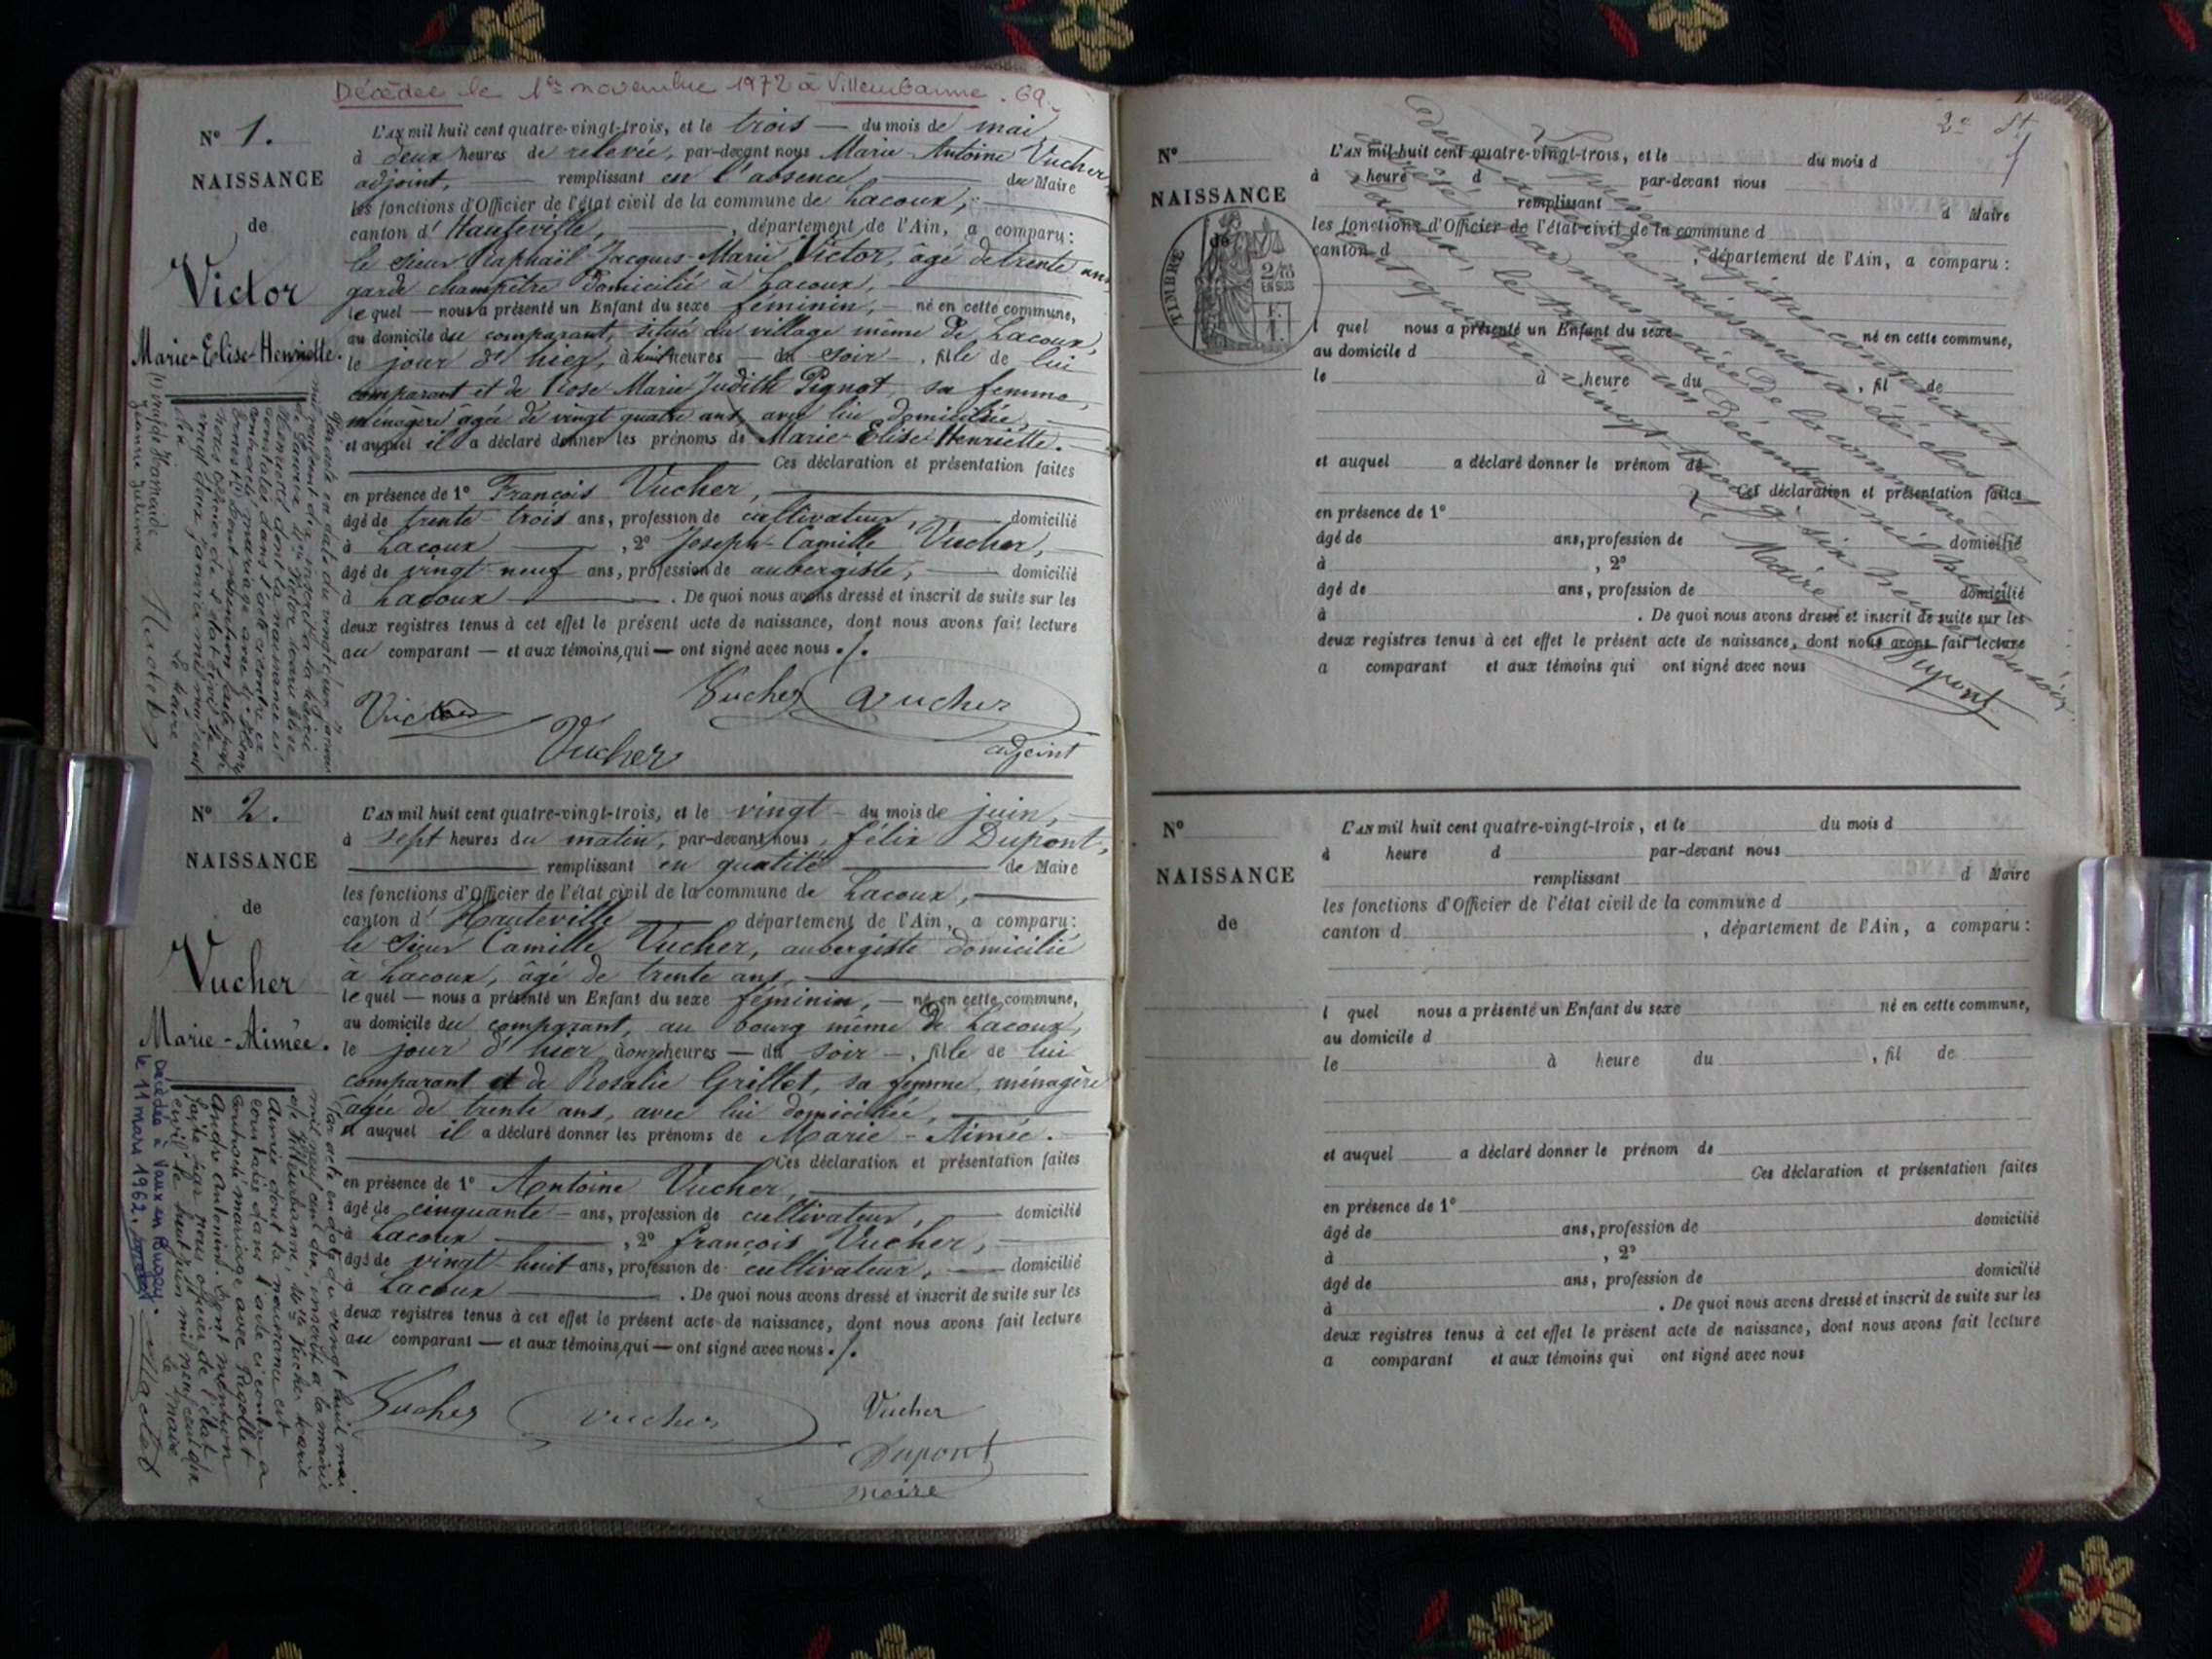 Décédée le 1er novembre 1972 à Villeurbanne. 69.
N° 1.
NAISSANCE
de
Victor
Marie-Elise-Henriette.
L'AN mil huit cent quatre-vingt-trois, et le trois — du mois de mai
à deux heures de relevée, par-devant nous Marie-Antoine Vucher
adjoint, — remplissant en l'absence — du Maire
les fonctions d'Officier de l'état civil de la commune de Lacoux, —
canton d' Hauteville, — , département de l'Ain, a comparu:
le sieur Raphaël-Jacques-Marie Victor, âgé de trente ans
garde champêtre domicilié à Lacoux, —
lequel — nous a présenté un Enfant du sexe féminin, — né en cette commune,
au domicile du comparant, situé au village même de Lacoux,
le jour d'hier, à huit heures — du soir — , fille de lui
comparant et de Rose Marie Judith Pignot, sa femme,
ménagère âgée de vingt quatre ans, avec lui domiciliée, —
et auquel il a déclaré donner les prénoms de Marie-Elise-Henriette. —
Ces déclaration et présentation faites
en présence de 1° François Vucher, —
âgé de trente-trois ans, profession de cultivateur, — domicilié
à Lacoux — , 2° Joseph-Camille Vucher, —
âgé de vingt-neuf ans, profession de aubergiste, — domicilié
à Lacoux — . De quoi nous avons dressé et inscrit de suite sur les
deux registres tenus à cet effet le présent acte de naissance, dont nous avons fait lecture
au comparant — et aux témoins, qui — ont signé avec nous ./.
Victor
Vucher
Vucher
Vucher
adjoint
Par acte en date du vingt
Le Maire
N° 2.
NAISSANCE
de
Vucher
Marie-Aimée.
L'AN mil huit cent quatre-vingt-trois, et le vingt — du mois de juin, —
à sept heures du matin, par-devant nous, Félix Dupont,
— remplissant en qualité — de Maire
les fonctions d'Officier de l'état civil de la commune de Lacoux, —
canton d' Hauteville — département de l'Ain, a comparu:
le sieur Camille Vucher, aubergiste domicilié
à Lacoux, âgé de trente ans, —
lequel — nous a présenté un Enfant du sexe féminin, — né en cette commune,
au domicile du comparant, au bourg même de Lacoux,
le jour d'hier, à onze heures — du soir — , fille de lui
comparant et de Rosalie Grillet, sa femme, ménagère
âgée de trente ans, avec lui domiciliée, —
et auquel il a déclaré donner les prénoms de Marie-Aimée. —
Ces déclaration et présentation faites
en présence de 1° Antoine Vucher, —
âgé de cinquante — ans, profession de cultivateur, — domicilié
à Lacoux — , 2° François Vucher, —
âgé de vingt-huit ans, profession de cultivateur, — domicilié
à Lacoux — . De quoi nous avons dressé et inscrit de suite sur les
deux registres tenus à cet effet le présent acte de naissance, dont nous avons fait lecture
au comparant — et aux témoins, qui — ont signé avec nous ./.
Vucher
Vucher
Vucher
Dupont
maire
Par acte en date du vingt huit mai
mil neuf cent dix inscrit à la mairie
de Villeurbanne, Vucher Marie
Aimée dont la naissance est
constatée dans l'acte ci contre a
contracté mariage avec Pegollet
André Antonin. Dont mention
faite par nous officier de l'état
civil le huit juin mil neuf cent dix
Le Maire
Décédée à Vaux en Bugey.
le 11 mars 1962.
2e St
N°
NAISSANCE
de
TIMBRE
2/10
EN SUS
L'AN mil huit cent quatre-vingt-trois, et le du mois d
à heure d par-devant nous
remplissant d Maire
les fonctions d'Officier de l'état civil de la commune d
canton d , département de l'Ain, a comparu:
l quel nous a présenté un Enfant du sexe né en cette commune,
au domicile d
le à heure du , fil de
et auquel a déclaré donner le prénom de
Ces déclaration et présentation faites
en présence de 1°
âgé de ans, profession de domicilié
à , 2°
âgé de ans, profession de domicilié
à . De quoi nous avons dressé et inscrit de suite sur les
deux registres tenus à cet effet le présent acte de naissance, dont nous avons fait lecture
a comparant et aux témoins qui ont signé avec nous
Le présent registre contenant
deux actes de naissances a été clos
et arrêté par nous maire de la commune de
Lacoux, le trente un Décembre mil huit
cent quatre vingt trois, à six heures du soir.
Le Maire
Dupont
N°
NAISSANCE
de
L'AN mil huit cent quatre-vingt-trois, et le du mois d
à heure d par-devant nous
remplissant d Maire
les fonctions d'Officier de l'état civil de la commune d
canton d , département de l'Ain, a comparu:
l quel nous a présenté un Enfant du sexe né en cette commune,
au domicile d
le à heure du , fil de
et auquel a déclaré donner le prénom de
Ces déclaration et présentation faites
en présence de 1°
âgé de ans, profession de domicilié
à , 2°
âgé de ans, profession de domicilié
à . De quoi nous avons dressé et inscrit de suite sur les
deux registres tenus à cet effet le présent acte de naissance, dont nous avons fait lecture
a comparant et aux témoins qui ont signé avec nous